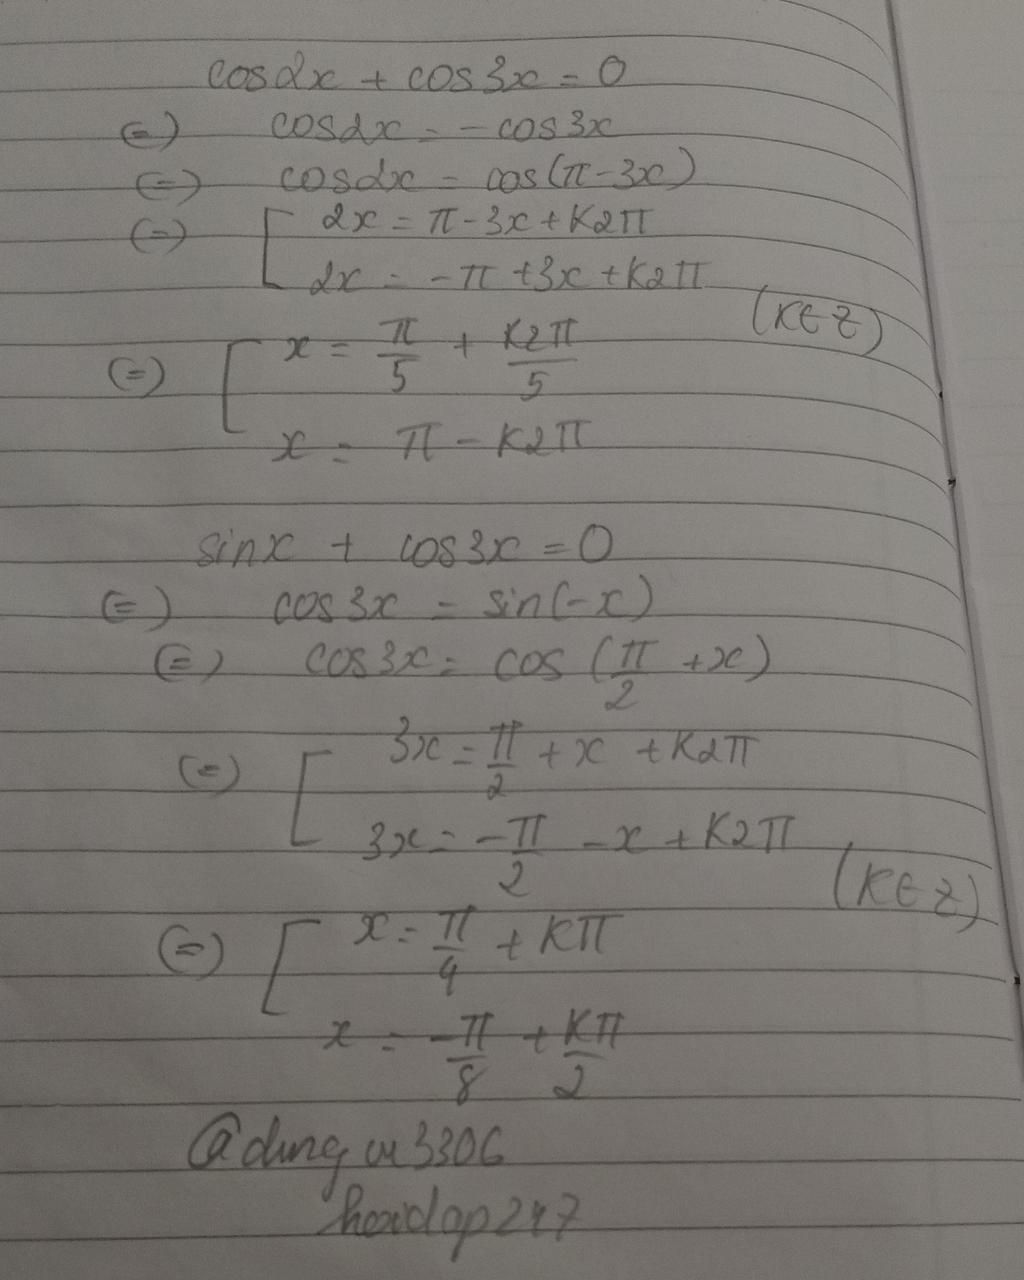 cos2x + cos3x = 0
(=) cos2x = - cos3x
(=) cos2x = cos(π - 3x)
(=) [ 2x = π - 3x + K2π
2x = - π + 3x + K2π
(K∈Z)
(=) [ x = π/5 + K2π/5
x = π - K2π
sinx + cos3x = 0
(=) cos3x = sin(-x)
(=) cos3x = cos(π/2 + x)
(=) [ 3x = π/2 + x + K2π
3x = -π/2 - x + K2π
(K∈Z)
(=) [ x = π/4 + Kπ
x = -π/8 + Kπ/2
hoidap247